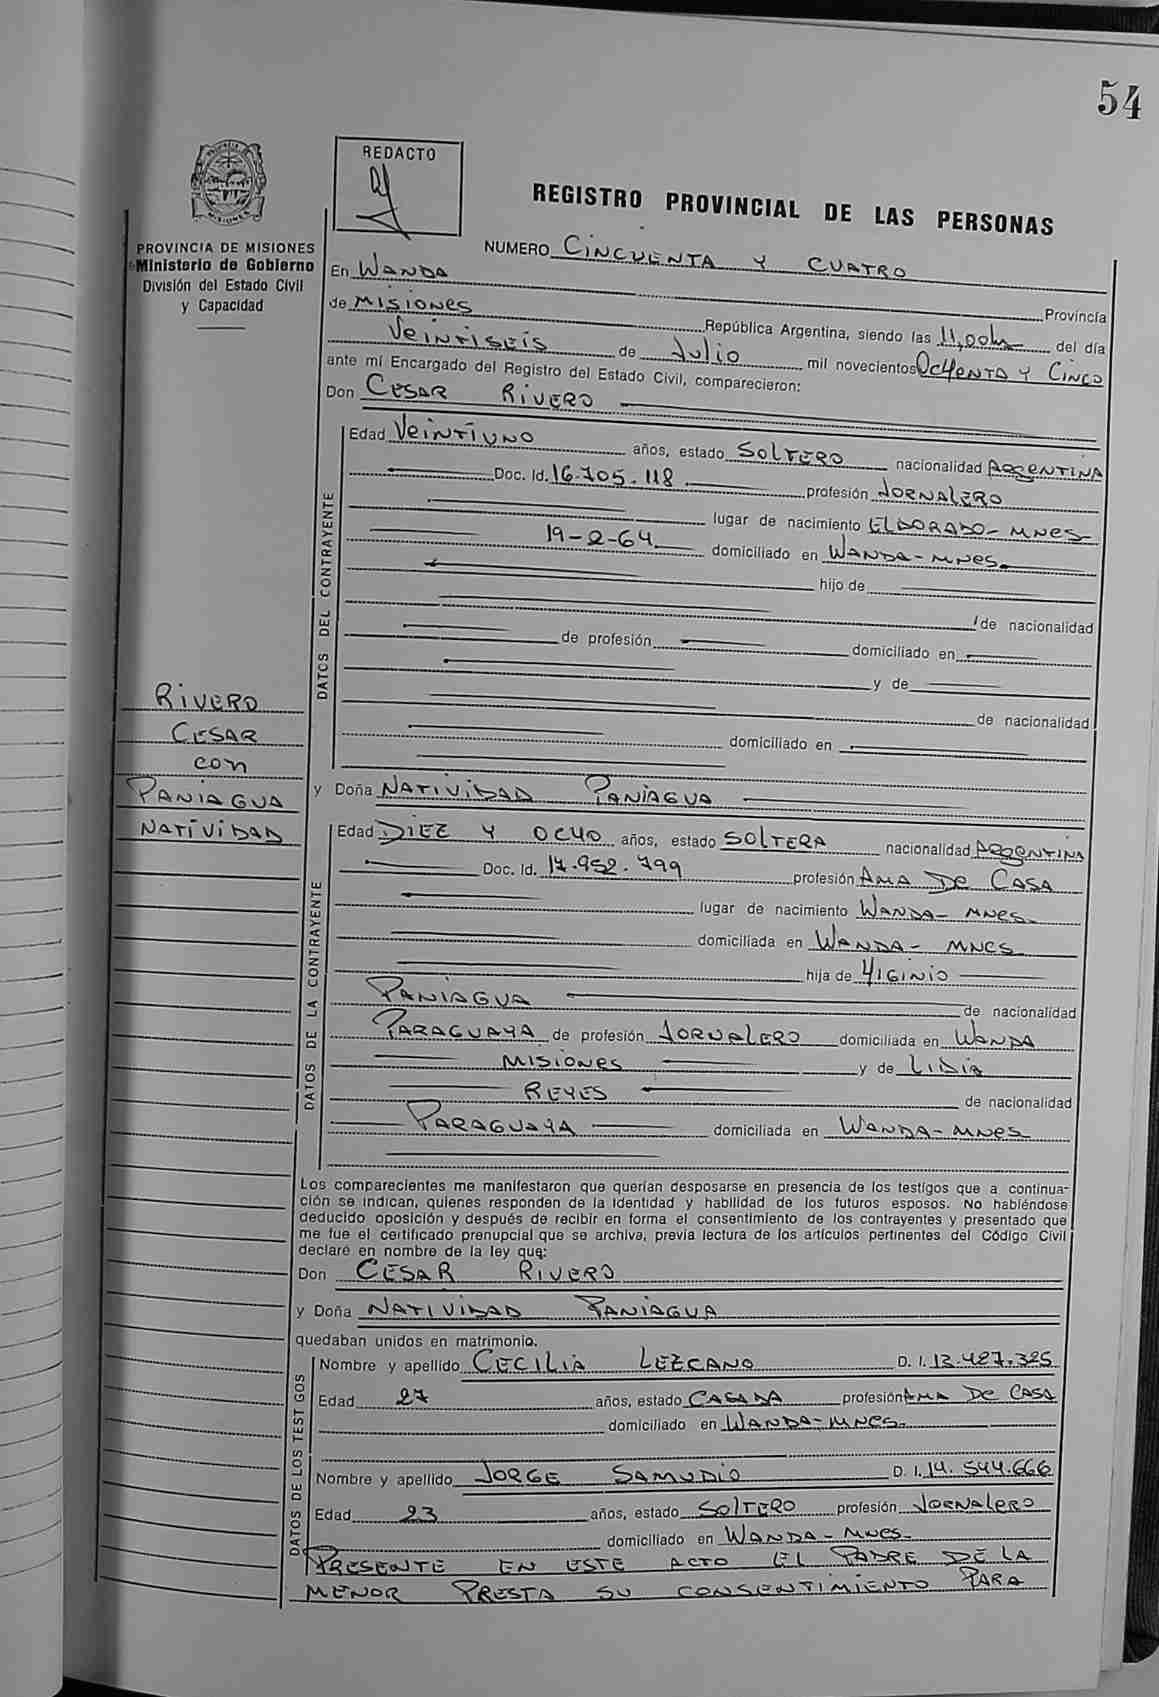 54
PROVINCIA DE MISIONES
REDACTO
REGISTRO PROVINCIAL DE LAS PERSONAS
PROVINCIA DE MISIONES
Ministerio de Gobierno
División del Estado Civil
y Capacidad
NUMERO CINCUENTA Y CUATRO
En WANDA Provincia
de MISIONES República Argentina, siendo las 11,00hs del día
VEINTISEIS de JULIO mil novecientos OCHENTA Y CINCO
ante mí Encargado del Registro del Estado Civil, comparecieron:
Don CESAR RIVERO
DATOS DEL CONTRAYENTE
Edad VEINTIUNO años, estado SOLTERO nacionalidad ARGENTINA
Doc. Id. 16.705.118 profesión JORNALERO
lugar de nacimiento ELDORADO-MNES-
19-2-64 domiciliado en WANDA-MNES.
hijo de
de nacionalidad
de profesión domiciliado en
y de
de nacionalidad
domiciliado en
RIVERO
CESAR
con
PANIAGUA
NATIVIDAD
y Doña NATIVIDAD PANIAGUA
DATOS DE LA CONTRAYENTE
Edad DIEZ Y OCHO años, estado SOLTERA nacionalidad ARGENTINA
Doc. Id. 17.952.799 profesión AMA DE CASA
lugar de nacimiento WANDA- MNES-
domiciliada en WANDA- MNES
hija de HIGINIO
PANIAGUA de nacionalidad
PARAGUAYA de profesión JORNALERO domiciliada en WANDA
MISIONES y de LIDIA
REYES de nacionalidad
PARAGUAYA domiciliada en WANDA-MNES
Los comparecientes me manifestaron que querían desposarse en presencia de los testigos que a continua-
ción se indican, quienes responden de la identidad y habilidad de los futuros esposos. No habiéndose
deducido oposición y después de recibir en forma el consentimiento de los contrayentes y presentado que
me fue el certificado prenupcial que se archiva, previa lectura de los artículos pertinentes del Código Civil
declaré en nombre de la ley que:
Don CESAR RIVERO
y Doña NATIVIDAD PANIAGUA
quedaban unidos en matrimonio.
DATOS DE LOS TESTIGOS
Nombre y apellido CECILIA LEZCANO D. I. 13.427.325
Edad 27 años, estado CASADA profesión AMA DE CASA
domiciliado en WANDA-MNES-
Nombre y apellido JORGE SAMUDIO D. I. 14.544.666
Edad 23 años, estado SOLTERO profesión JORNALERO
domiciliado en WANDA-MNES-
PRESENTE EN ESTE ACTO EL PADRE DE LA
MENOR PRESTA SU CONSENTIMIENTO PARA